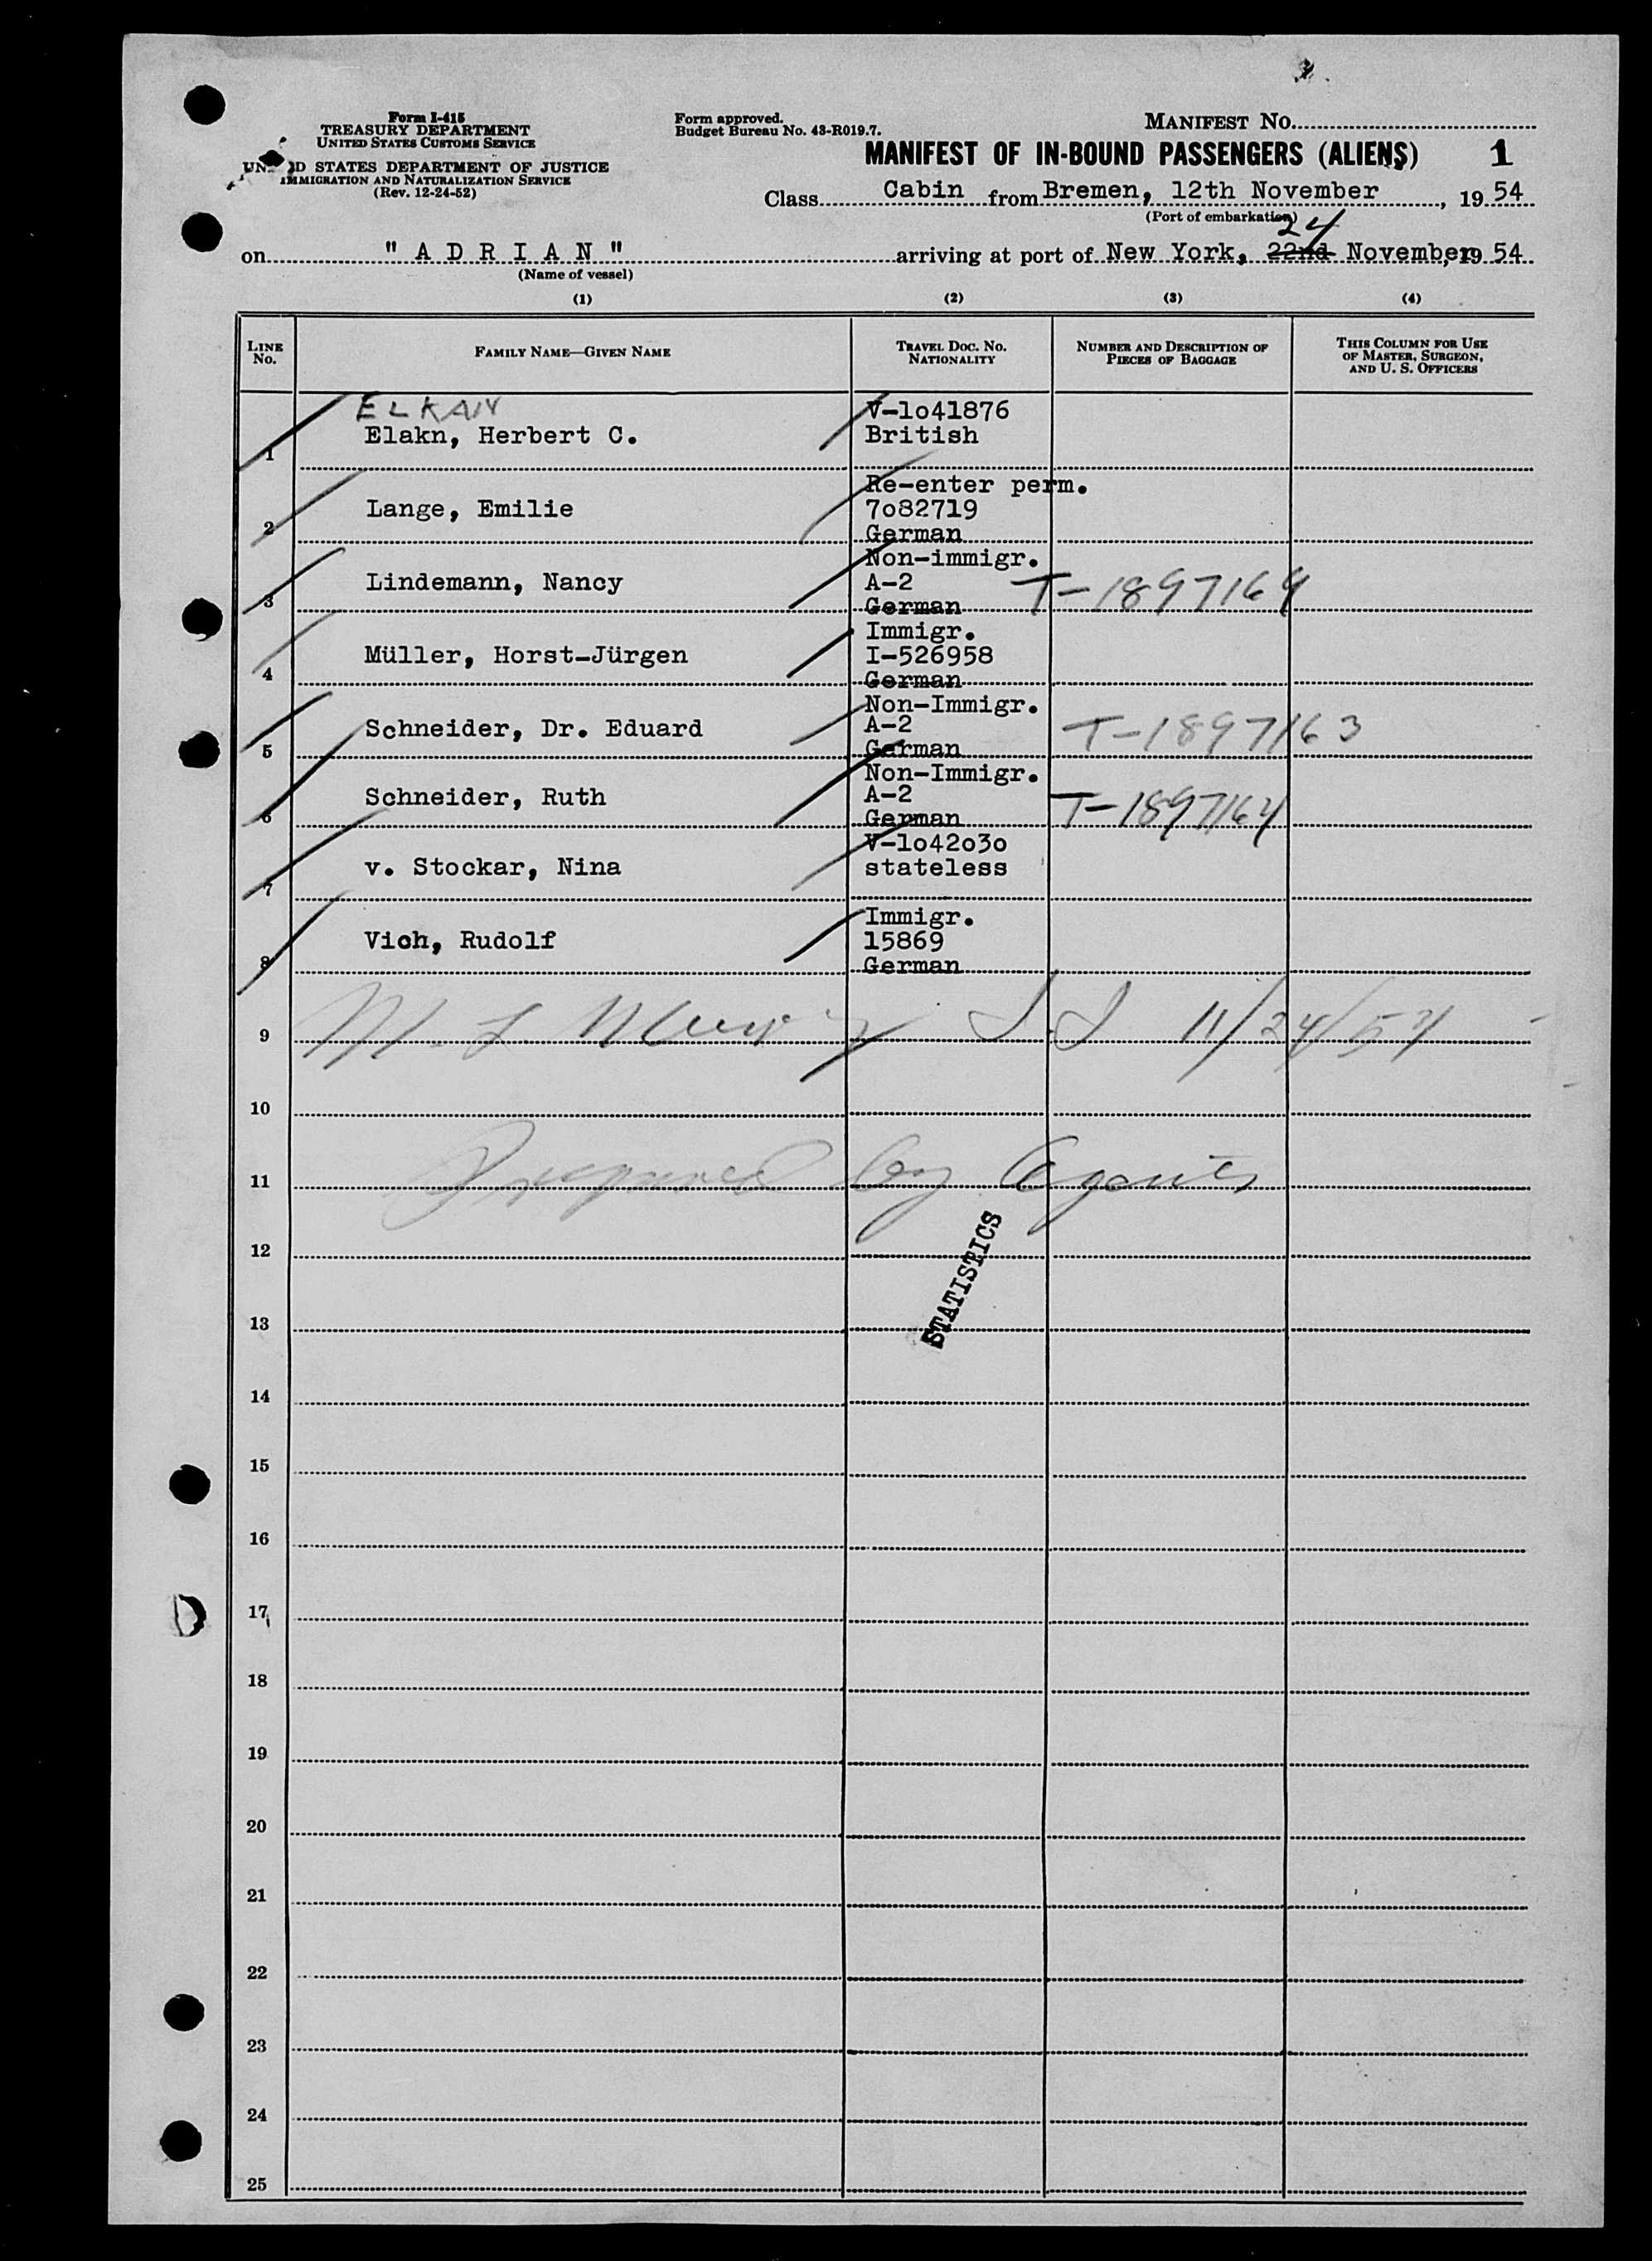 Form I-415
TREASURY DEPARTMENT
UNITED STATES CUSTOMS SERVICE
D STATES DEPARTMENT OF JUSTICE
IMMIGRATION AND NATURALIZATION SERVICE
(Rev. 12-24-52)
Form approved.
Budget Bureau No. 43-R019.7.
MANIFEST NO.
MANIFEST OF IN-BOUND PASSENGERS (ALIENS) 1
Class Cabin from Bremen, 12th November, 19 54
(Port of embarkation)
24
on " A D R I A N " arriving at port of New York, 22nd November, 19 54
(Name of vessel)
(1) (2) (3) (4)
LINE No. FAMILY NAME—GIVEN NAME TRAVEL DOC. NO. NATIONALITY NUMBER AND DESCRIPTION OF PIECES OF BAGGAGE THIS COLUMN FOR USE OF MASTER, SURGEON, AND U. S. OFFICERS
ELKAN V-1o41876
1 Elakn, Herbert C. British
Re-enter perm.
2 Lange, Emilie 7o82719
German
Non-immigr.
3 Lindemann, Nancy A-2 T-1897169
German
Immigr.
4 Müller, Horst-Jürgen I-526958
German
Non-Immigr.
5 Schneider, Dr. Eduard A-2 T-1897163
German
Non-Immigr.
6 Schneider, Ruth A-2 T-1897164
German
V-1o42o3o
7 v. Stockar, Nina stateless
Immigr.
8 Vich, Rudolf 15869
German
9 M. L. 11/24/54
10
11 Prepared by Agents
12
STATISTICS
13
14
15
16
17
18
19
20
21
22
23
24
25